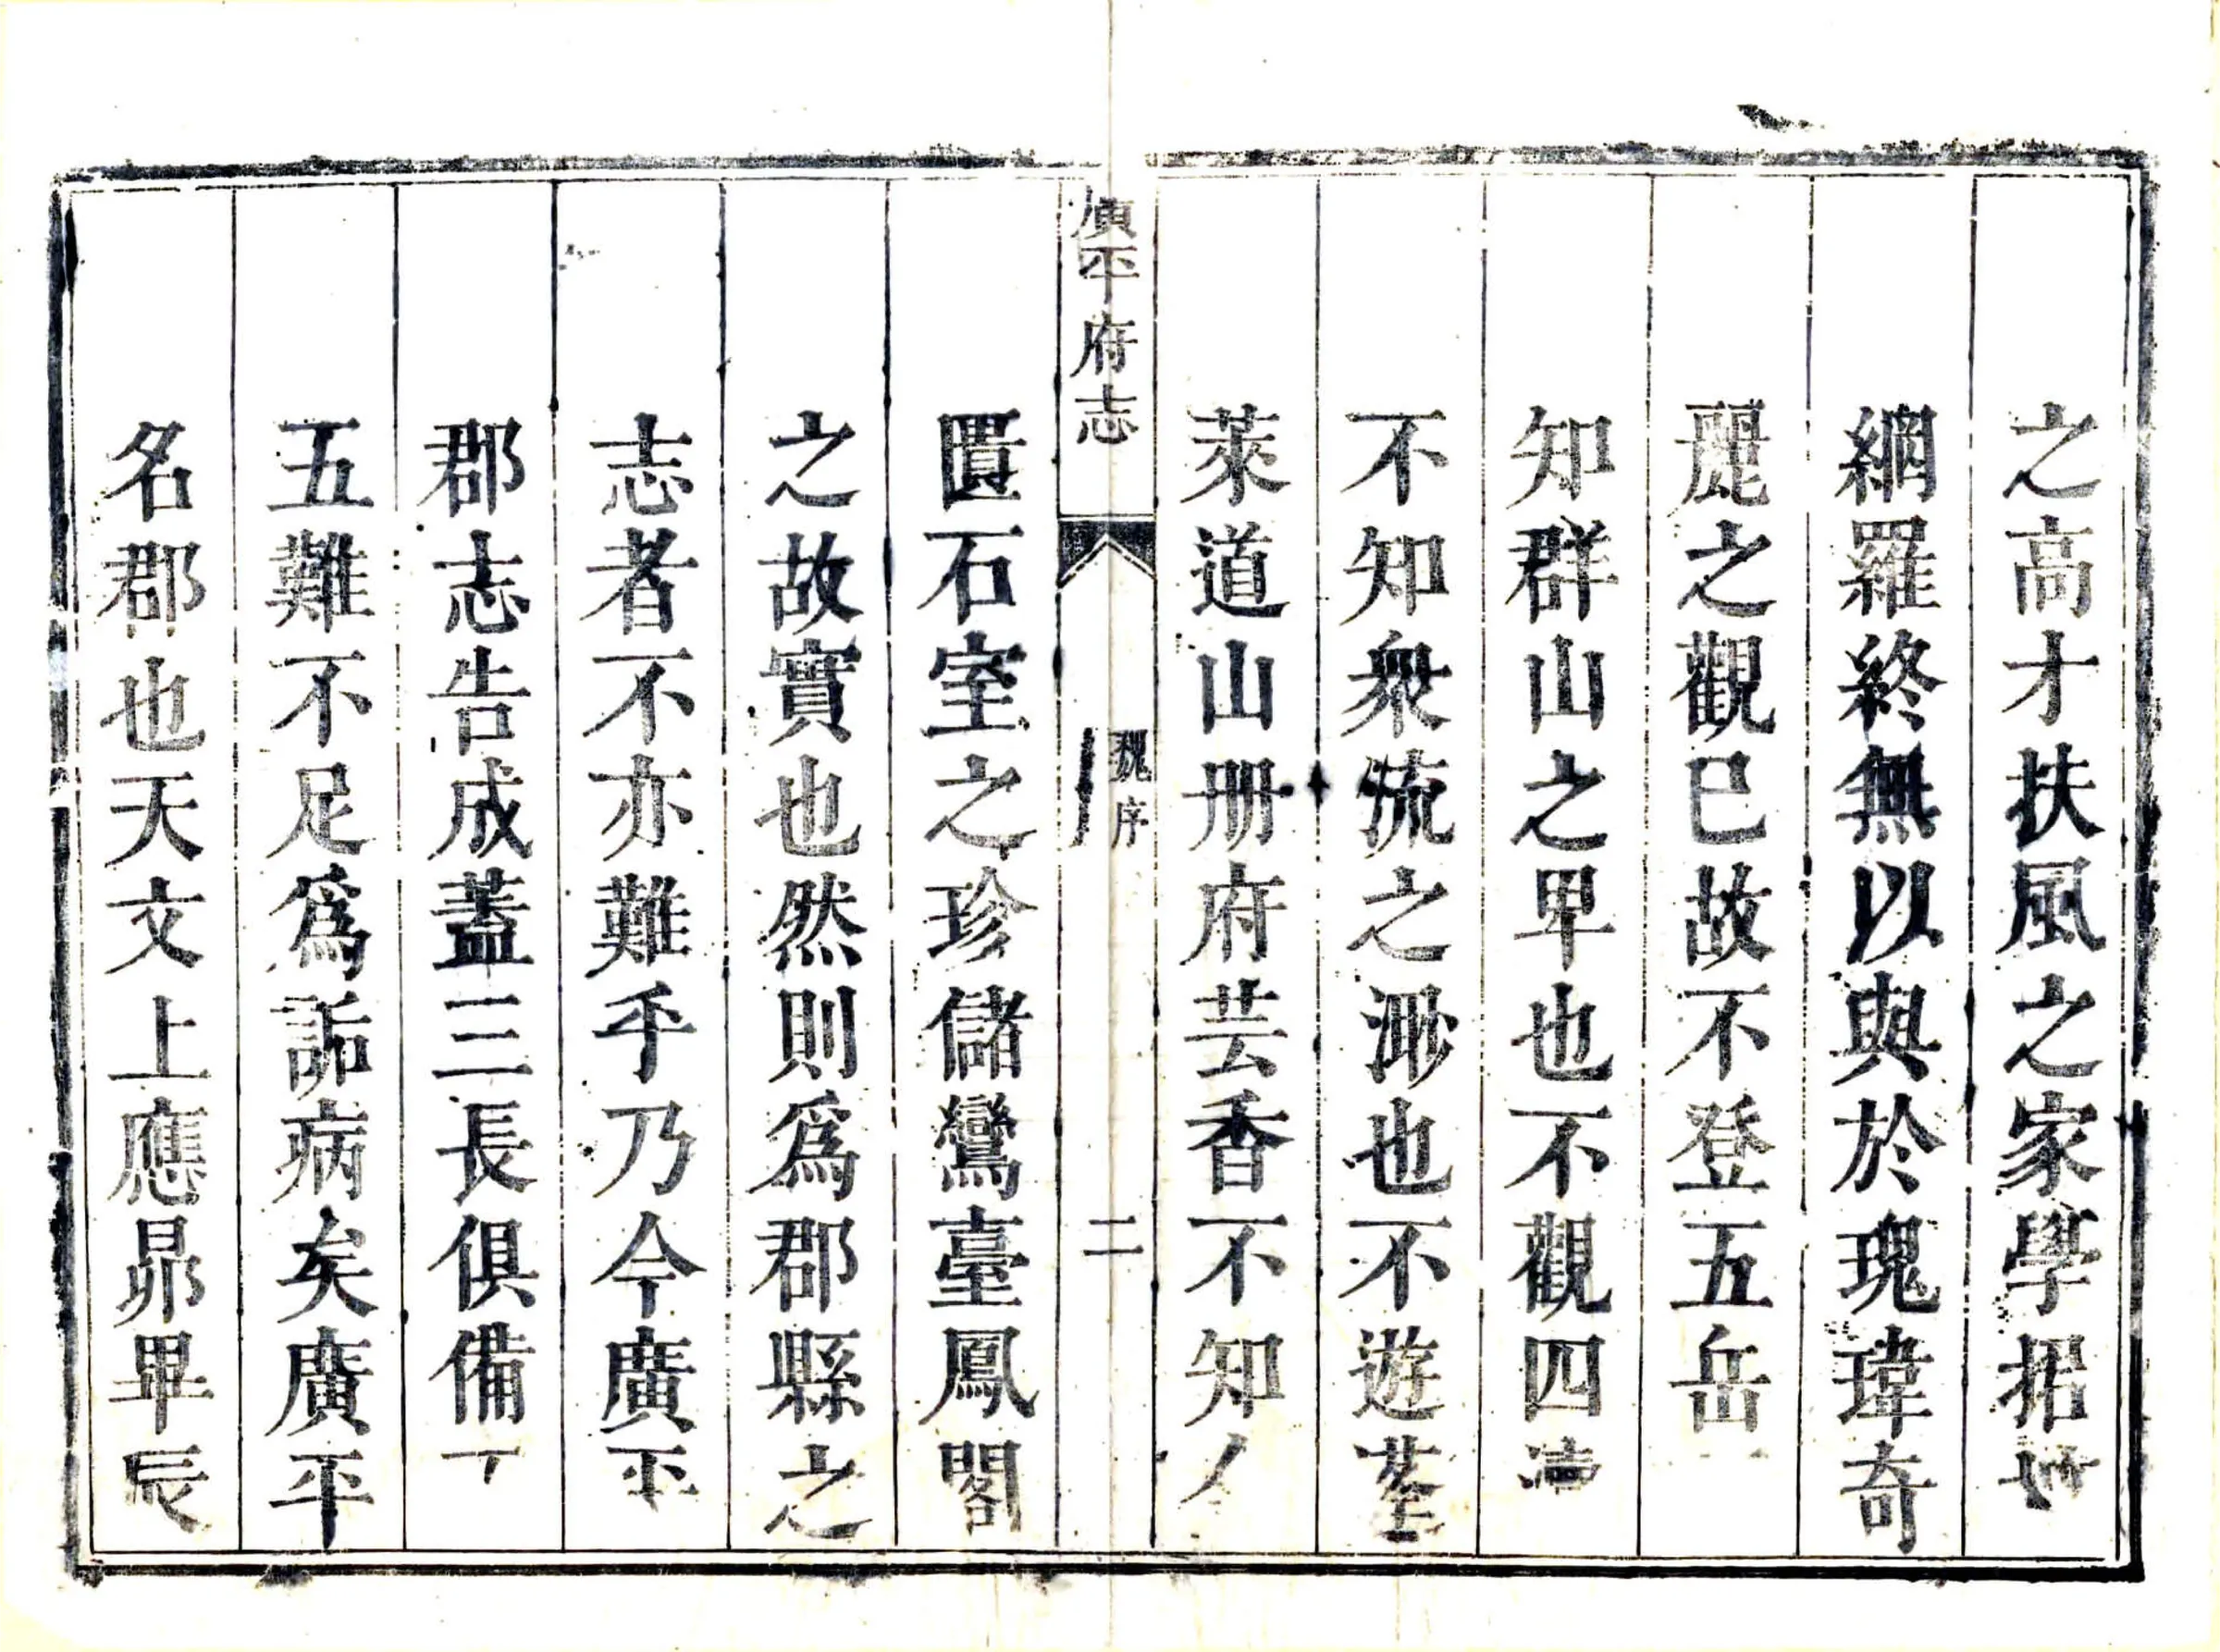 之高才扶風之家學
網羅終無以與於瑰瑋奇
麗之觀已故不登五岳
知群山之卑也不觀四
不知衆流之渺也不遊蓬
萊道山册府芸香不知
廣平府志
魏序
二
匱石室之珍儲鸞臺鳳閣
之故實也然則爲郡縣之
志者不亦難乎乃今廣平
郡志告成蓋三長俱備
五難不足爲詬病矣廣平
名郡也天文上應昴畢辰